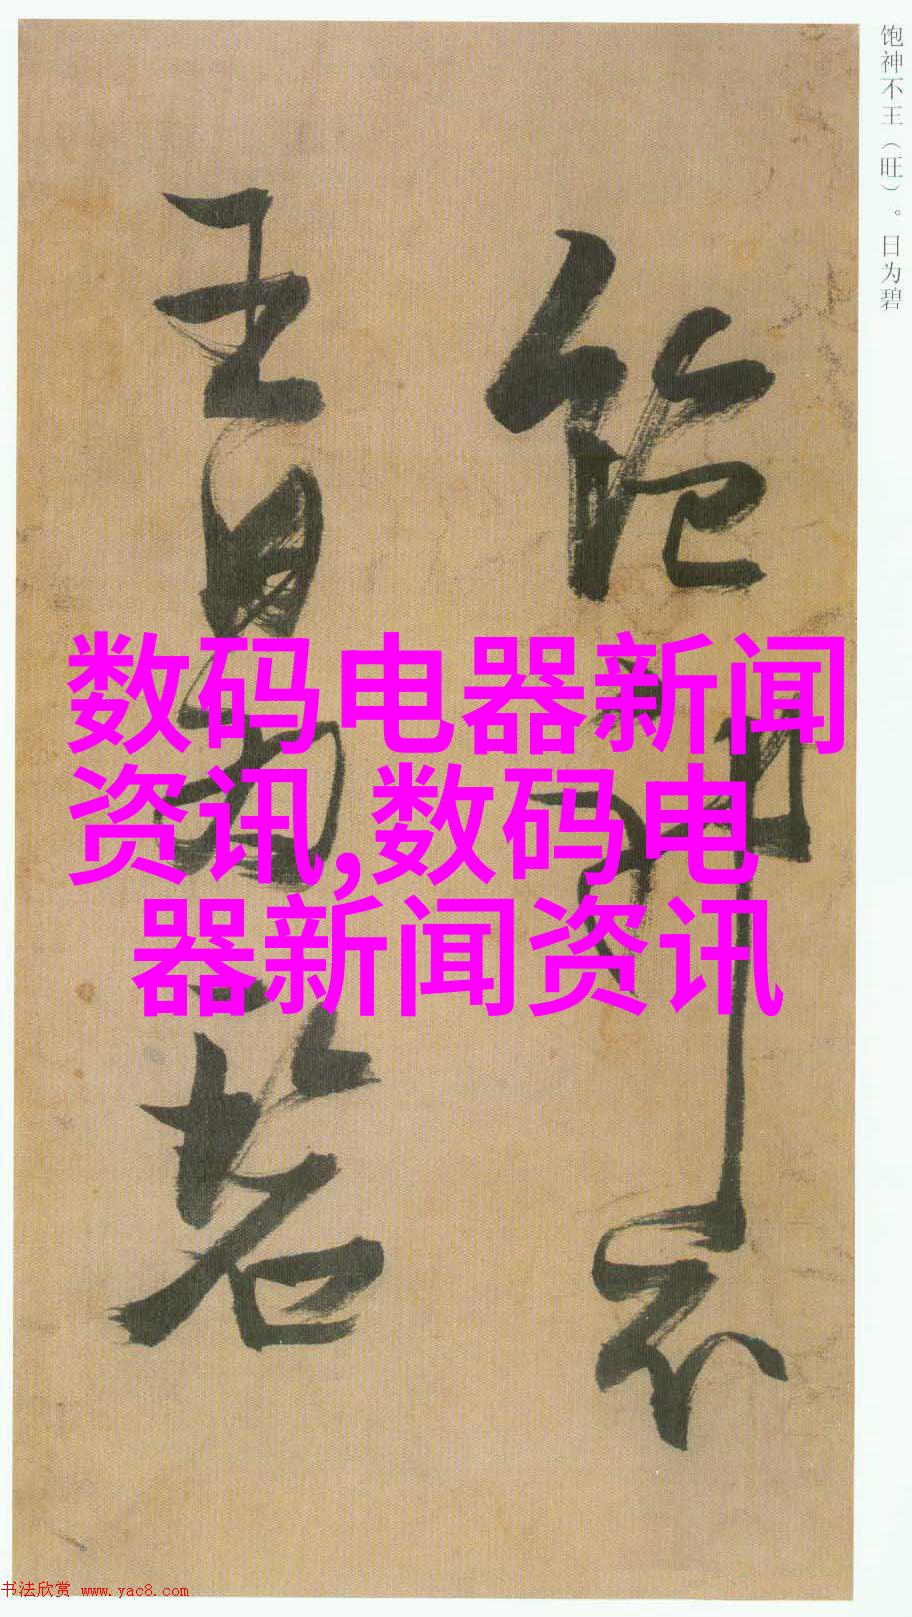 饱神不王（旺）。日为碧
饱神不
王日为碧
数码电器新闻
资讯,数码电
器新闻资讯
书法欣赏 www.yac8.com